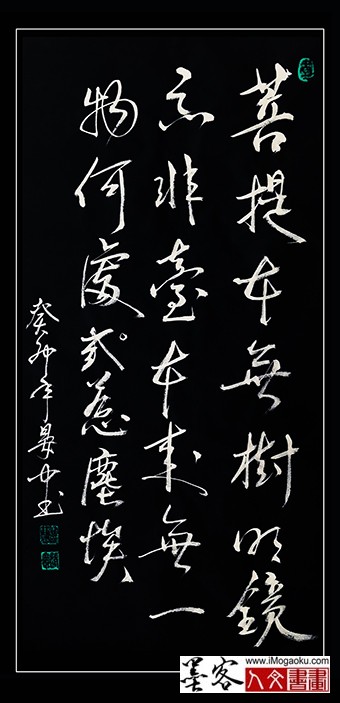 菩提本無樹明鏡
亦非臺本來無一
物何處惹塵埃
癸卯年書
墨客
www.iMogaoku.com
人文書畫